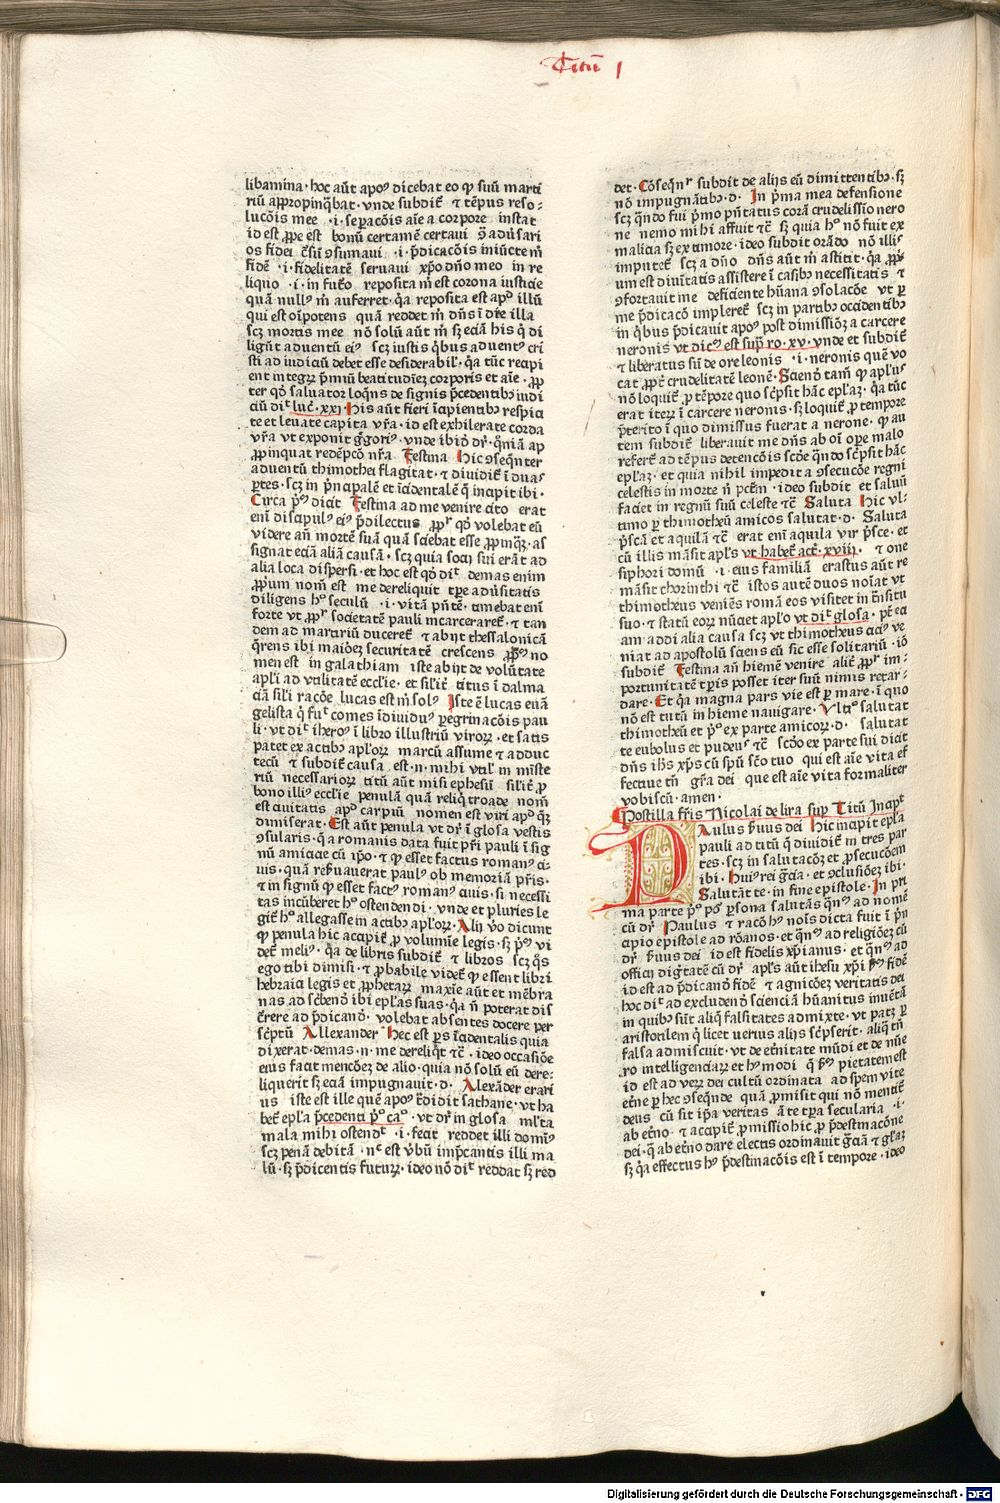 Titū 1
libamina. hoc aūt apoꝰ dicebat eo ꝙ suū marti
riū appropinq̄bat. vnde subdiť ⁊ tēpus reso-
lucōis mee .i. sepacōis aīe a corpore instat
id est ꝓpe est bonū certamē certaui ꝯ aduersari
os fidei
fidē .i. fidelitatē seruaui xp̄o dn̄o meo in re
liquo .i. in futo reposita m̄ est corona iusticie
quā nullꝰ m̄ auferret. q̄a reposita est apᵈ illū
qui est oīpotens quā reddet m̄ dn̄s ī die illa
scꝫ mortis mee nō solū aūt m̄ sꝫ eciā his q̄ di
ligūt aduentū eiꝰ scꝫ iustis q̄bus aduentꝰ cri
sti ad iudiciū debet esse desiderabil. q̄a tūc recipi
ent integꝝ p̄miū beatitudīeꝫ corporis et aīe. ꝓp
ter qd̄ saluator loq̄ns de signis p̄cedentibꝰ iudi
ciū diᵗ luc̄. xxi. His aūt fieri īcapientibꝰ respicia
te et leuate capita vr̄a. id est exhilerate corda
vr̄a vt exponit ḡgoriꝰ. vnde ibid̄ dr̄. qm̄iā ap
ꝓpinquat redēpcō nr̄a Festina Hic ꝯseq̄nter
aduentū thimothei flagitat. ⁊ diuidiť ī duas
ꝑtes. scꝫ in p̄ncipalē et īcidentalē q̄ incipit ibi.
Circa pᵐ dicit Festina ad me venire cito erat
eni discipulꝰ eiꝰ p̄dilectus ꝓpᵗ qd̄ volebat eū
videre an̄ mortē suā quā sciebat esse ꝓpinq̄ꝫ. as
signat eciā aliā causā. scꝫ quia socij sui erāt ad
alia loca dispersi. et hoc est qd̄ diᵗ demas enim
ꝓpum nom̄ est me dereliquit tꝑe aduersitatis
diligens hᵒ seculū .i. vitā pn̄tē. timebat enī
forte vt ꝓpᵗ societatē pauli incarcerareť. ⁊ tan
dem ad martiriū ducereť ⁊ abijt thessalonicā
q̄rens ibi maiōeꝫ securitatē crescens ꝓpᵐ no
men est in galathiam iste abijt de volūtate
apl̄i ad vtilitatē eccl̄ie. et sil̄iť titus ī dalma
ciā sil̄i racōe lucas est m̄ solꝰ Iste ē lucas euā
gelista q̄ fuᵗ comes īdiuiduꝰ peregrinacōis pau
li. vt diᵗ iheroꝰ ī libro illustriū viroꝝ. et satis
patet ex actibꝰ apl̄oꝝ marcū assume ⁊ adduc
tecū ⁊ subdiť causa est .n. mihi vtil̄ in mīste
riū necessarioꝝ titū aūt misi ephesū sil̄iť ꝓ
bono illiꝰ eccl̄ie penulā quā reliq̄ troade nom̄
est ciuitatis apᵈ carpiū nomen est viri apᵈ q̄ꝫ
dimiserat. Est aūt penula vt dr̄ ī glosa vestis
ꝯsularis. q̄a romanis data fuit pr̄i pauli ī sig
nū amicicie cū ip̄o. ⁊ ꝙ esset factus romanꝰ ci-
uis. quā reseruauerat paulꝰ ob memoriā pr̄is.
⁊ in signū ꝙ esset factꝰ romanꝰ ciuis. si necessi
tas incūberet hᵒ ostendendi. vnde et pluries le
giť hᵒ allegasse in actibꝰ apl̄oꝝ. Alij v̄o dicunt
ꝙ penula hic accipiť ꝓ volumīe legis. sꝫ pᵐ vi
deť meliꝰ. q̄a de libris subdiť ⁊ libros scꝫ q̄s
ego tibi dimisi. ⁊ ꝓbabile videť ꝙ essent libri
hebraica legis et ꝓphetaꝝ maxīe aūt et mēbra
nas ad scbendū ibi epl̄as suas. q̄a n̄ poterat dis
currere ad p̄dicandū. volebat absentes docere per
sc̄ptū Allexander Hec est ꝑs īcidentalis quia
dixerat. demas .n. me dereliq̄t ⁊c̄. ideo occasiōe
eius facit mencōeꝫ de alio. quia nō solū eū dere-
liquerit sꝫ eciā impugnauit. d. Alexāder erari
us iste est ille quē apoꝰ tradidit sathane. vt ha
beť epl̄a p̄cedenti pᵒ caᵒ. vt dr̄ in glosa ml̄ta
mala mihi ostendᵗ .i. fecit reddet illi domīꝰ
scꝫ penā debitā. nᶜ est v̄bū imp̄cantis illi ma
lū. sꝫ p̄dicentis futuꝝ. ideo nō diᵗ reddat sꝫ red
det. Cōseq̄nᵗ subdit de alijs eū dimittentibꝰ. sꝫ
nō impugnātibꝰ. d. In p̄ma mea defensione
scꝫ qn̄do fui p̄mo pn̄tatus corā crudelissīo nero
ne nemo mihi affuit ⁊c̄ sꝫ quia hᵒ nō fuit ex
malicia sꝫ ex timore. ideo subdit orādo nō illis
imputeť scꝫ a dn̄o dn̄s aūt m̄ astitit. q̄a ꝓp̄ᵘ
um est diuītatis assistere ī casibꝰ necessitatis ⁊
ꝯfortauit me deficiente hūana ꝯsolacōe vt ꝑ
me p̄dicacō impleret scꝫ in partibꝰ occidentibꝰ
in q̄bus p̄dicauit apoꝰ post dimissiōeꝫ a carcere
neronis vt dicꝰ est supᵃ ro. xv. vnde et subdiť
⁊ liberatus sū de ore leonis .i. neronis quē vo
cat ꝓpᵗ crudelitatē leonē. Sciend̄ tam̄ ꝙ apl̄us
nō loquiť ꝓ tēpore quo sc̄psit hāc epl̄aꝫ. q̄a tūc
erat iteꝝ ī carcere neronis. sꝫ loquiť ꝓ tempore
p̄terito ī quo dimissus fuerat a nerone. ꝙ au
tem subdiť liberauit me dn̄s ab oī ope malo
referť ad tēpus detencōis scd̄e qn̄do sc̄psit hāc
epl̄aꝫ. et quia nihil impedit a ꝯsecucōe regni
celestis in morte n̄ pctm̄. ideo subdit et saluū
faciet in regnū suū celeste ⁊c̄ Saluta Hic vl-
timo ꝑ thimotheū amicos salutat. d. Saluta
p̄scā et aquilā ⁊c̄ erat enī aquila vir p̄sce. et
cū illis māsit apl̄s vt habeť act̄. xviij. ⁊ one
siphori domū .i. eius familiā erastus aūt re
māsit chorinthi ⁊c̄ istos autē duos noīat vt
thimotheus veniēs romā eos visitet in trāsitu
suo. ⁊ statū eoꝝ nūciet apl̄o vt diᵗ glosa. p̄t eci
am addi alia causa scꝫ vt thimotheus ciciꝰ ve
niat ad apostolū sciens eū sic esse solitariū. iō
subdiť Festina an̄ hiemē venire alitᵗ ꝓpᵗ im-
portunitatē tꝑis posset iter suū nimis retar-
dare. Et q̄a magna pars vie est ꝑ mare. ī quo
nō est tutū in hieme nauigare. Vltīᵒ salutat
thimotheū et pᵒ ex parte amicoꝝ. d. salutat
te eubolus et pudens ⁊c̄ scd̄o ex parte sui dicit
dn̄s ih̄s xp̄s cū sp̄ū sc̄o tuo qui est aīe vita ef
fectiue tm̄ gr̄a dei que est aīe vita formaliter
vobiscū. amen.
Postilla fr̄is Nicolai de lira suꝑ Titū Incipᵗ
Paulus s̄uus dei Hic incipit epl̄a
pauli ad titū q̄ diuidiť in tres par
tes. scꝫ in salutacōeꝫ et ꝓsecucōem
ibi. Huiꝰ rei gr̄cia. et ꝯclusiōeꝫ ibi.
Salutāt te. in fine epistole. In pri
ma parte pᵒ poᵗ persona salutās qᵃⁿ ad nomē
cū dr̄ Paulus ⁊ racō hꝰ noīs dicta fuit ī pn̄
cipio epistole ad rōanos. et qᵃⁿ ad religiōeꝫ cū
dr̄ s̄uus dei id est fidelis xp̄ianus. et qᵃⁿ ad
officij dig̅tatē cū dr̄ apl̄s aūt ihesu xp̄i scᵐ fidē
id est ad p̄dicandū fidē ⁊ agnicōeꝫ veritatis dei
hoc diᵗ ad excludend̄ scienciā hūanitus inuētā
in quibꝰ sūt aliq̄ falsitates admixte. vt patꝫ ꝑ
aristotilem q̄ licet verius alijs sc̄pserit. aliq̄ tn̄
falsa admiscuit. vt de et̄nitate mūdi et de nūe
ro intelligenciaꝝ et hꝰ modi q̄ scᵐ pietatem est
id est ad veꝝ dei cultū ordinata ad spem vite
et̄ne ꝑ hec ꝯseq̄nde quā ꝓmisit qui nō mentiť
deus cū sit ip̄a veritas āte tꝑa secularia .i.
ab et̄no ⁊ accipiť ꝓmissio hic ꝓ p̄destinacōne
dei. q̄ ab et̄no dare electis ordinauit gr̄ciā ⁊ gl̄aꝫ
sꝫ q̄a effectus hꝰ p̄destinacōis est ī tempore. ideo
Digitalisierung gefördert durch die Deutsche Forschungsgemeinschaft - DFG